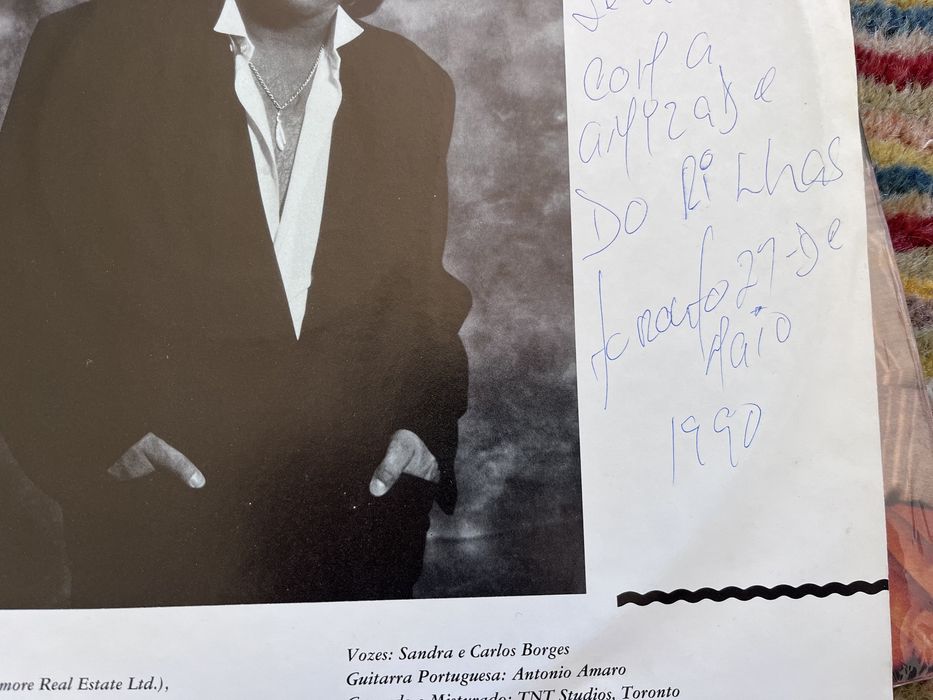 com a
amizade
Do Ri Lhas
Toronto 27-De
Maio
1990
Vozes: Sandra e Carlos Borges
more Real Estate Ltd.),
Guitarra Portuguesa: Antonio Amaro
Gravado e Misturado: TNT Studios, Toronto